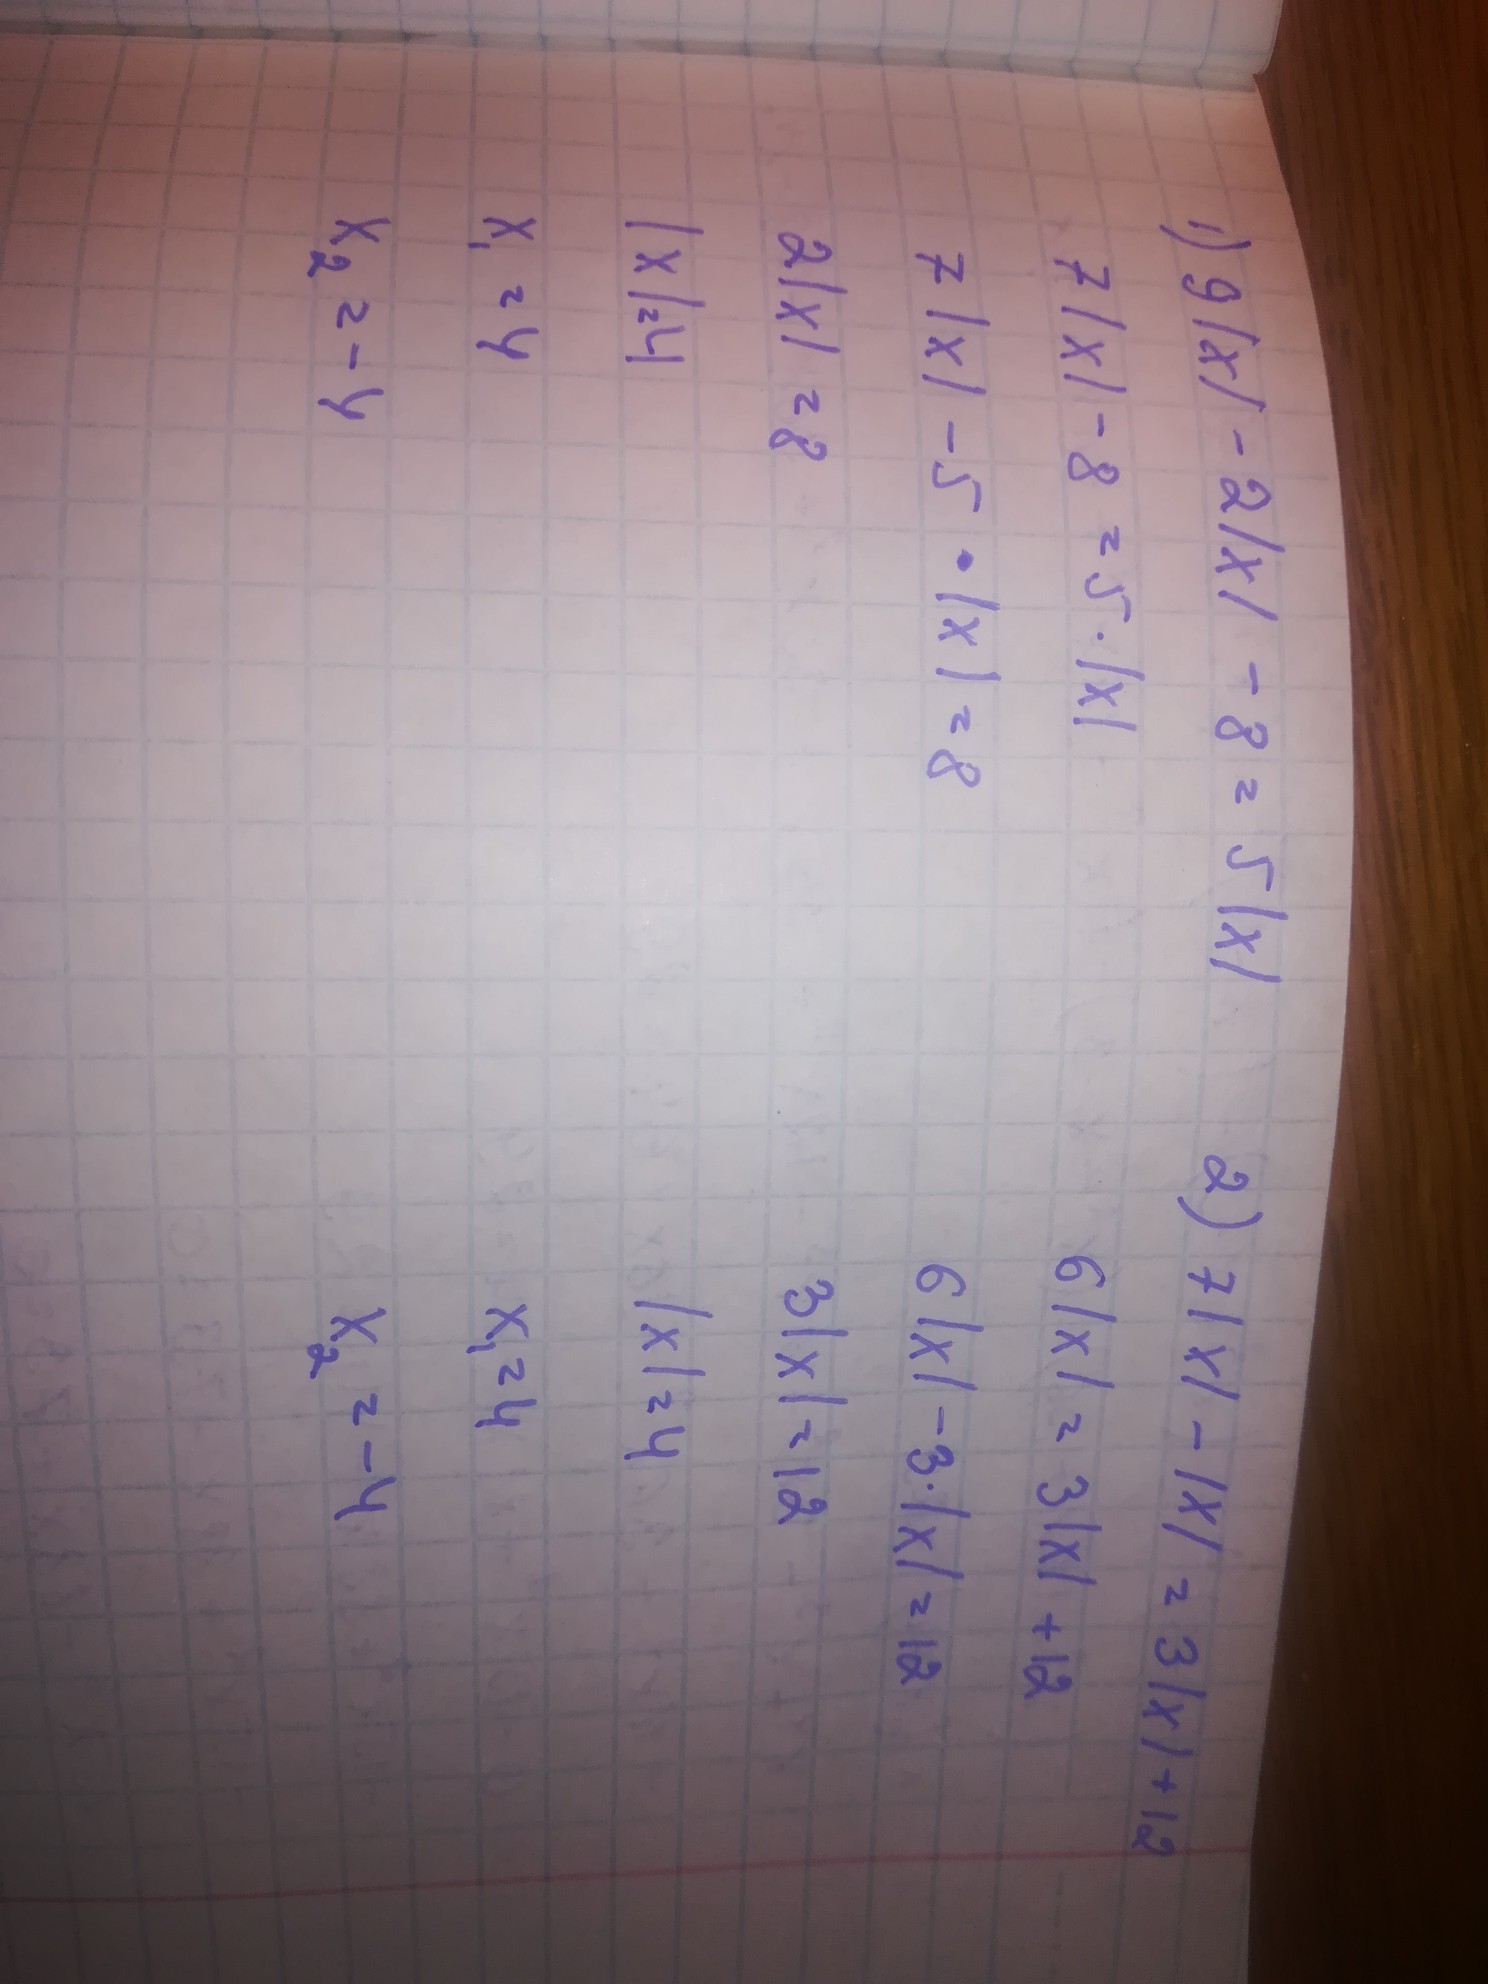 1) 9|x| - 2|x| - 8 = 5|x|
7|x| - 8 = 5·|x|
7|x| - 5·|x| = 8
2|x| = 8
|x| = 4
x₁ = 4
x₂ = -4
2) 7|x| - |x| = 3|x| + 12
6|x| = 3|x| + 12
6|x| - 3·|x| = 12
3|x| = 12
|x| = 4
x₁ = 4
x₂ = -4